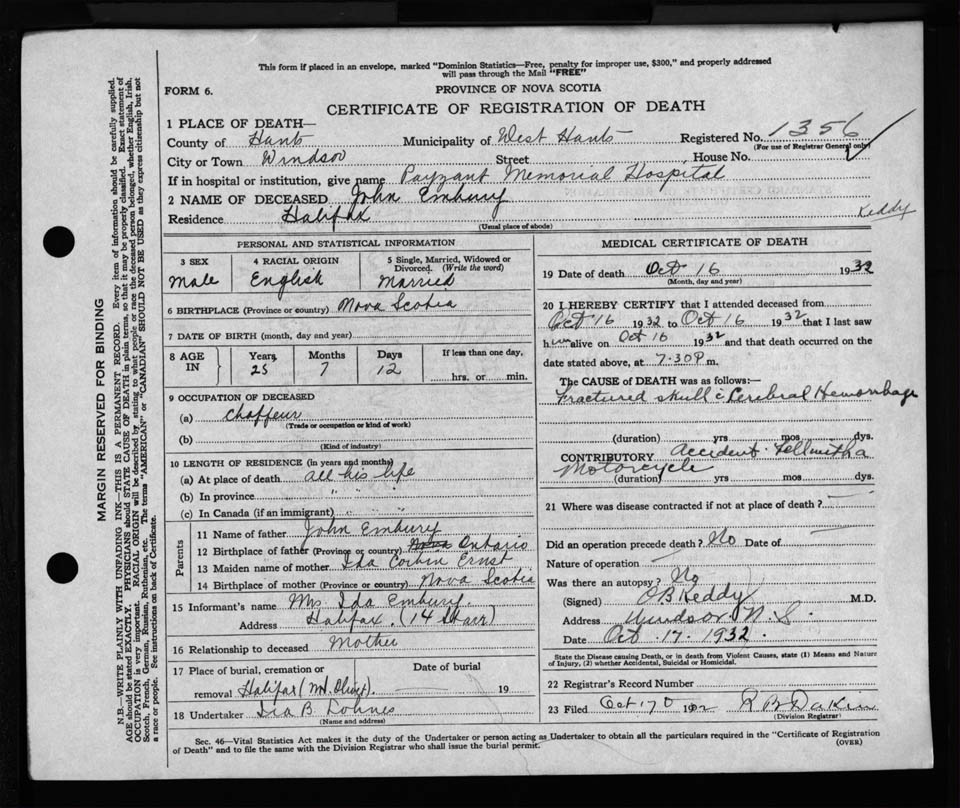 This form if placed in an envelope, marked "Dominion Statistics—Free, penalty for improper use, $300," and properly addressed
will pass through the Mail "FREE"
FORM 6.
PROVINCE OF NOVA SCOTIA
CERTIFICATE OF REGISTRATION OF DEATH
1 PLACE OF DEATH—
County of Hants Municipality of West Hants Registered No. 1356
(For use of Registrar General only)
City or Town Windsor Street House No.
If in hospital or institution, give name Payzant Memorial Hospital
2 NAME OF DECEASED John Embury
Residence Halifax Keddy
(Usual place of abode)
PERSONAL AND STATISTICAL INFORMATION
3 SEX 4 RACIAL ORIGIN 5 Single, Married, Widowed or Divorced. (Write the word)
Male English Married
6 BIRTHPLACE (Province or country) Nova Scotia
7 DATE OF BIRTH (month, day and year)
8 AGE IN Years Months Days If less than one day,
25 7 12 hrs. or min.
9 OCCUPATION OF DECEASED
(a) Chaffeur
(Trade or occupation or kind of work)
(b)
(Kind of industry)
10 LENGTH OF RESIDENCE (in years and months)
(a) At place of death all his life
(b) In province " " "
(c) In Canada (if an immigrant) " "
Parents
11 Name of father John Embury
12 Birthplace of father (Province or country) Nova Ontario
13 Maiden name of mother Ida Corbin Ernst
14 Birthplace of mother (Province or country) Nova Scotia
15 Informant's name Mrs Ida Embury.
Address Halifax, (14 Starr)
16 Relationship to deceased Mother
17 Place of burial, cremation or Date of burial
removal Halifax (Mt. Olivet). — 19
18 Undertaker
(Name and address)
MEDICAL CERTIFICATE OF DEATH
19 Date of death Oct 16 1932
(Month, day and year)
20 I HEREBY CERTIFY that I attended deceased from
Oct 16 1932 to Oct 16 1932 that I last saw
him alive on Oct 16 1932 and that death occurred on the
date stated above, at 7.30 P. m.
The CAUSE OF DEATH was as follows:—
Fractured skull c̄ Cerebral Hemorrhage
(duration) yrs mos dys.
CONTRIBUTORY Accident. Fell with a
Motorcycle
(duration) yrs mos dys.
21 Where was disease contracted if not at place of death? —
Did an operation precede death? No Date of —
Nature of operation —
Was there an autopsy? No
(Signed) O B Keddy M.D.
Address Windsor N.S.
Date Oct. 17. 1932.
State the Disease causing Death, or in death from Violent Causes, state (1) Means and Nature
of Injury, (2) whether Accidental, Suicidal or Homicidal.
22 Registrar's Record Number
23 Filed Oct 17 1932 R B Dakin
(Division Registrar)
Sec. 46—Vital Statistics Act makes it the duty of the Undertaker or person acting as Undertaker to obtain all the particulars required in the "Certificate of Registration
of Death" and to file the same with the Division Registrar who shall issue the burial permit.
(OVER)
MARGIN RESERVED FOR BINDING
N.B.—WRITE PLAINLY WITH UNFADING INK—THIS IS A PERMANENT RECORD. Every item of information should be carefully supplied.
AGE should be stated EXACTLY. PHYSICIANS should STATE CAUSE OF DEATH in plain terms, so that it may be properly classified. Exact statement of
OCCUPATION is very important. RACIAL ORIGIN will be described by stating to what people or race the deceased person belonged, whether English, Irish,
Scotch, French, German, Russian, Ruthenian, etc. The terms "AMERICAN" or "CANADIAN" SHOULD NOT BE USED as they express citizenship but not
a race or people. See instructions on back of Certificate.